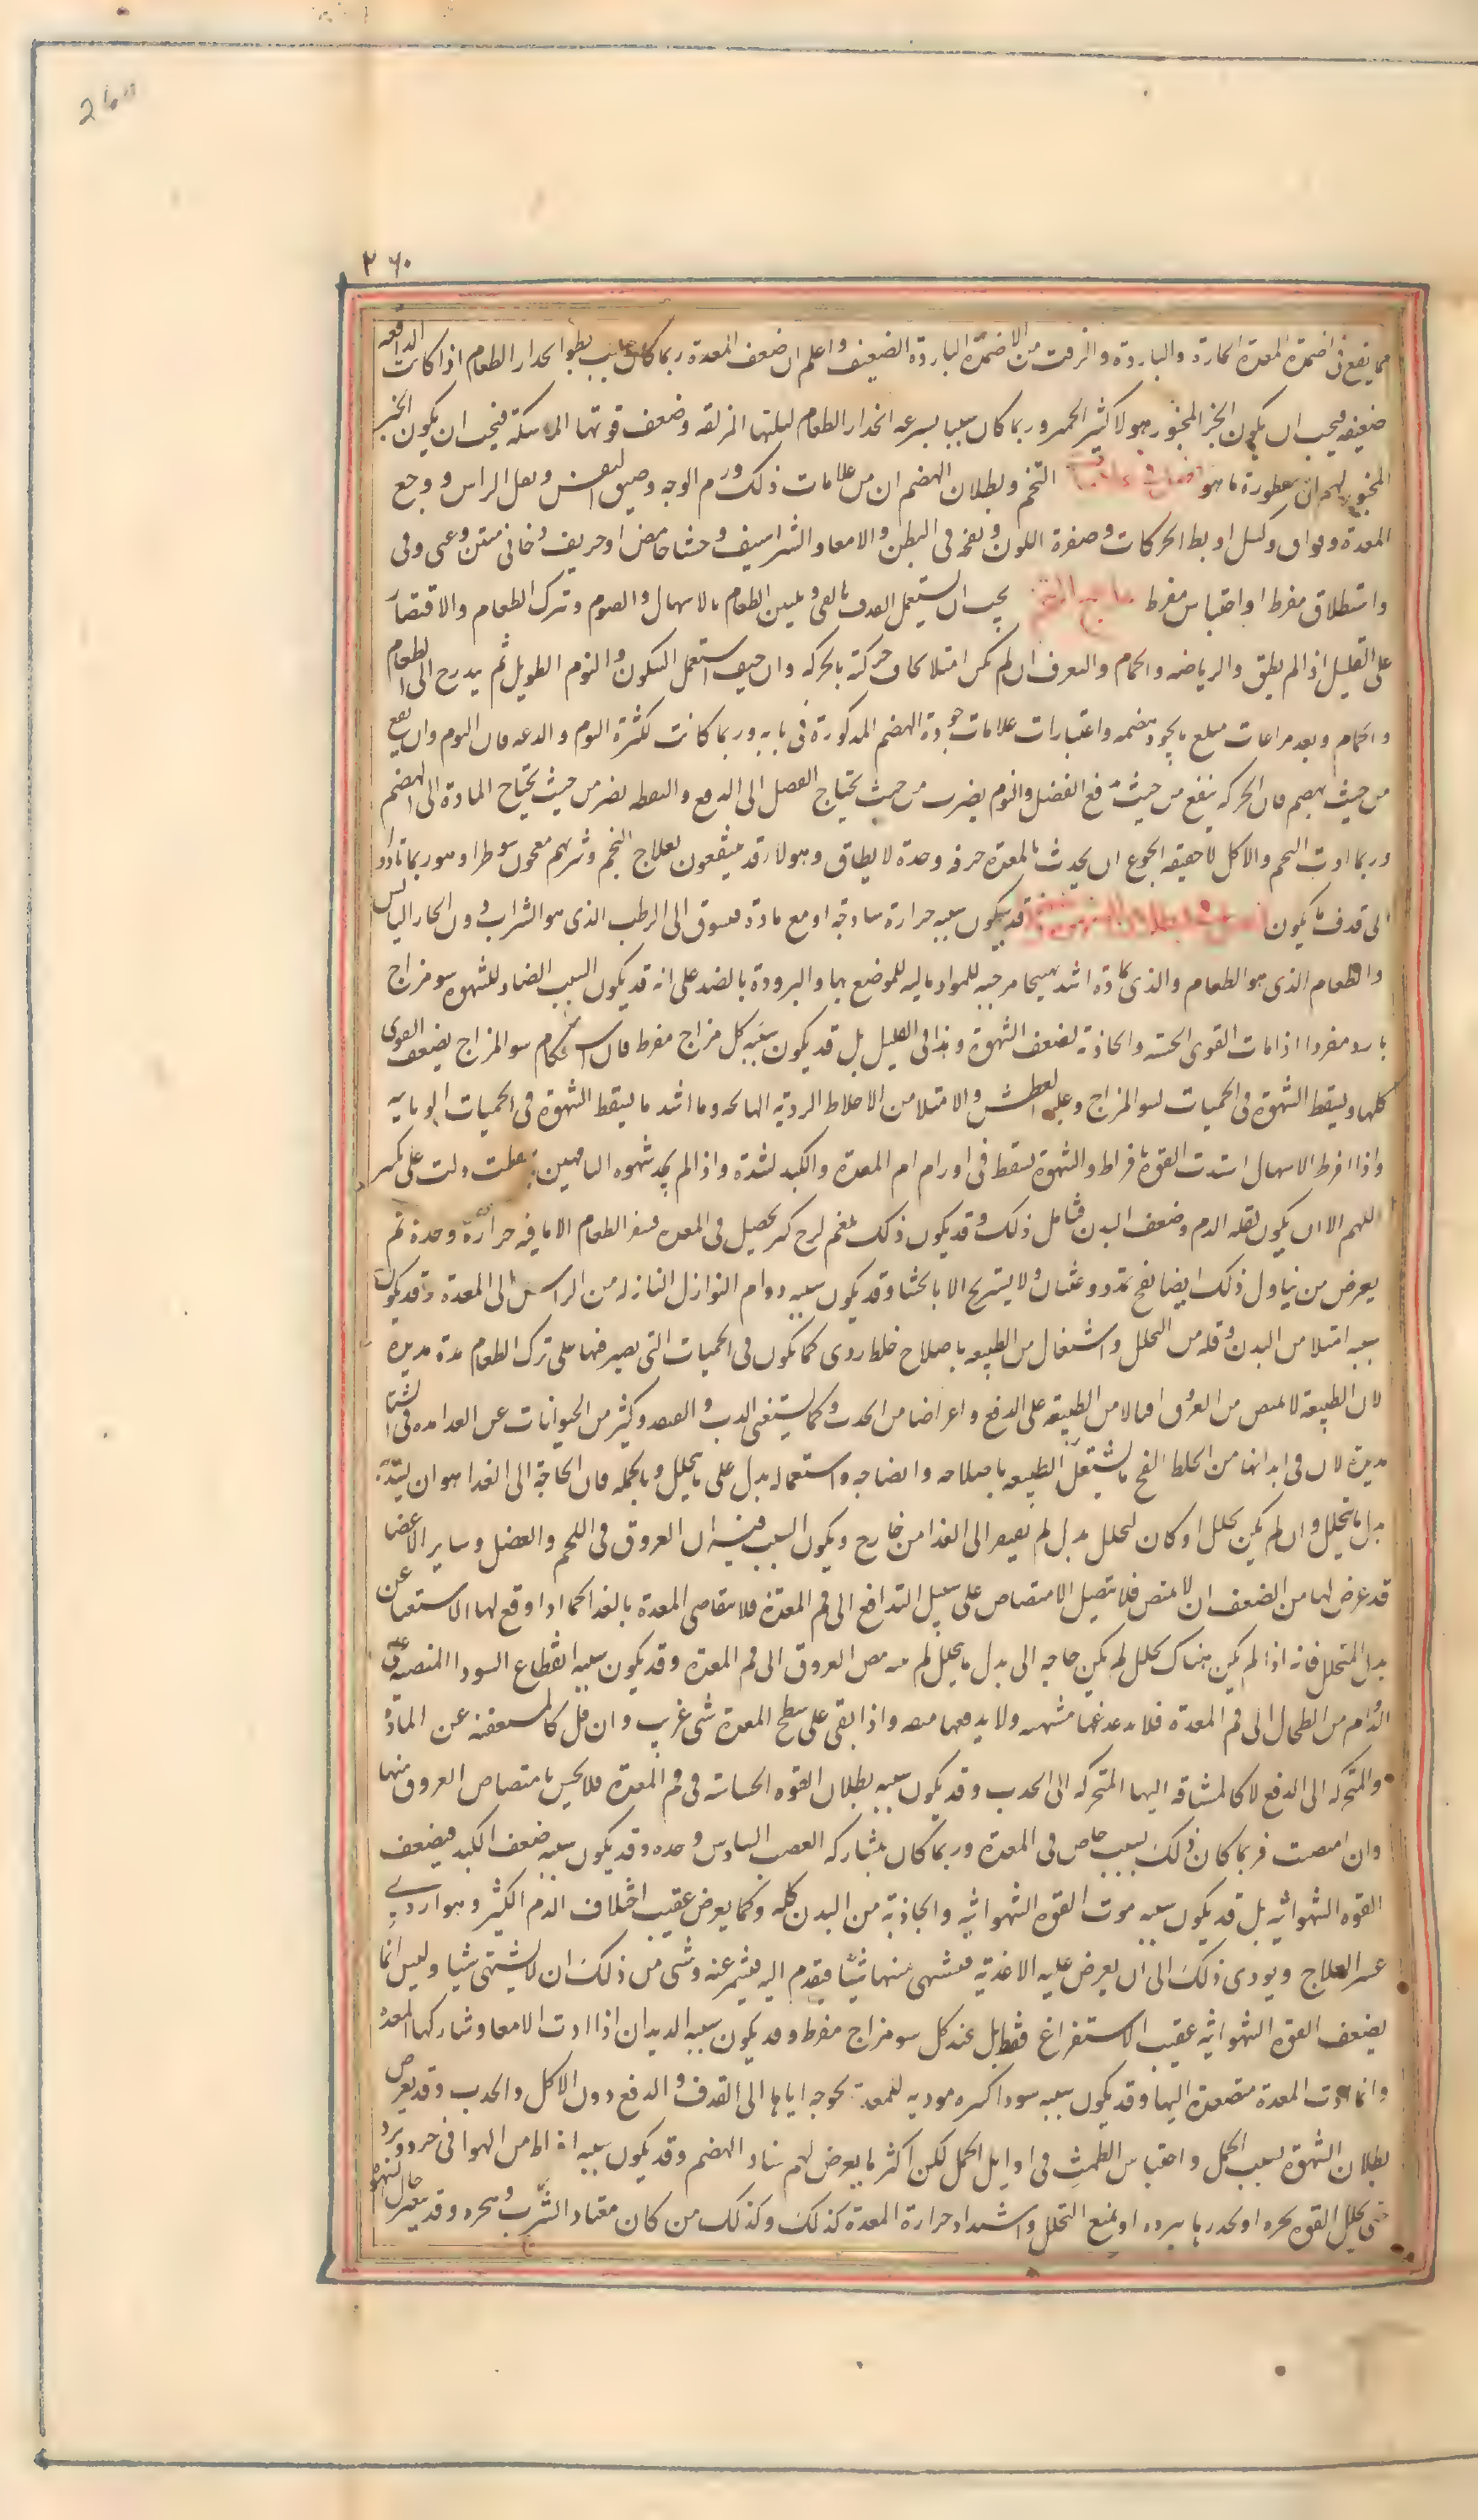 260
٢٦٠
مما يقع فى اضمدة المعدة الحارة والباردة والزفت من الاضمدة الباردة الضعيف واعلم ان ضعف المعدة ربما كان سبب بطوء انحدار الطعام اذا كانت الدافعه
ضعيفه فيجب ان يكون الخبز المخبوز هولا كثير الخمير وربما كان سببا لسرعه انحدار الطعام لبلتها المزلقه وضعف قوتها الماسكة فيجب ان يكون الخبز
المخبوز لهم الى فطورة ما هو التخم وبطلان الهضم ان من علامات ذلك ورم الوجه وضيق النفس وثقل الراس ووجع
المعدة وفواق وكسل او بطا الحركات وصفرة اللون ونفخه فى البطن والامعا والشراسيف وجشا حامض او حريف دخانى منتن وغثى وقى
واستطلاق مفرط او احتباس مفرط علاج التخم يجب ان يستعمل القذف بالقى وتليين الطعام بالاسهال والصوم وترك الطعام والاقتصار
على القليل اذا لم يطق والرياضه والحمام والتعرف ان لم يكن امتلا يخاف حركته بالحركه وان خيف استعمل السكون والنوم الطويل ثم يدرج الى الطعام
والحمام وبعد مراعات مبلغ ما يجود هضمه واعتبارات علامات جودة الهضم المذكورة فى بابه وربما كانت لكثرة النوم والدعه فان النوم وان نفع
من حيث يهضم فان الحركه ينفع من حيث دفع الفضل والنوم يضر من حيث يحتاج الفضل الى الدفع واليقظه يضر من حيث يحتاج المادة الى الهضم
وربما ادت التخم والاكل لا حقيقه الجوع ان يحدث بالمعدة حرقه وحدة لا يطاق وهولا قد ينتفعون بعلاج التخم ويبريهم معجون سوطرا وهو ربما تادوا
الى قذف ما ياكلون فصل فى بطلان الشهوة وضعفها قد يكون سببه حرارة ساذجه او مع مادة فيتشوق الى الرطب الذى هو الشراب دون الحار اليابس
والطعام الذى هو الطعام والذى بمادة اشد تهييجا مرخيه للمواد مايله للموضع بها والبرودة بالضد على انه قد يكون السبب الضاد للشهوة سو مزاج
بارد مفردا اذا مات القوى الحسيه والجاذبة لضعف الشهوة وهذا فى القليل بل قد يكون سببه كل مزاج مفرط فان استحكام سو المزاج يضعف القوى
كلها ويسقط الشهوة فى الحميات لسو المزاج وغلبه العطش والامتلا من الاخلاط الرديه الهايجه وما اشد ما يسقط الشهوة فى الحميات الوبايه
واذا افرط الاسهال اشتدت القوة بافراط والشهوة تسقط فى اورام ام المعدة والكبد لشدة واذا لم يجد شهوه الناقهين فعلت دلت على نكس
اللهم الا ان يكون لقله الدم وضعف البدن فتامل ذلك وقد يكون ذلك بلغم لزج كثير يحصل فى المعدة فينفر الطعام الا ما فيه حرارة وحدة ثم
يعرض من تناول ذلك ايضا نفخ تمدد وغثيان ولا يستريح الا بالجشا وقد يكون سببه دوام النوازل النازله من الراس الى المعدة وقد يكون
سببه امتلا من البدن وقله من التحلل واشتغال من الطبيعه باصلاح خلط ردى كما يكون فى الحميات التى يصبر فيها على ترك الطعام مدة مديدة
لان الطبيعة لا تمتص من العروق اقبالا من الطبيعة على الدفع واعراضا من الجذب وكما يستغنى الدب والقنفذ وكثير من الحيوانات عن الغدا مده فى الشتا
مديدة لان فى ابدانها من الخلط الفج ما يشتغل الطبيعه باصلاحه وانضاجه واستعماله بدل على ما يتحلل وبالجمله فان الحاجة الى الغدا هو ان يسد به
بدل ما يتحلل وان لم يكن تحلل او كان لتحلل بدل لم يفتقر الى الغدا من خارج ويكون السبب فيه ان العروق فى اللحم والعضل وساير الاعضا
قد عرض لها من الضعف ان لا تمتص فلا يتصل الامتصاص على سبيل التدافع الى فم المعدة فلا يتقاضى المعدة بالغدا كما اذا وقع لها الاستغنا عن
بدل المتحلل فانه اذا لم يكن هناك تحلل لم يكن حاجه الى بدل ما يتحلل لم ينته مص العروق الى فم المعدة وقد يكون سببه انقطاع السودا المنصبه على
الدوام من الطحال الى فم المعدة فلا يدغدغها مشهيه ولا يدفعها منقيه واذا بقى على سطح المعدة شى غريب وان قل كالمستعفنه عن المادة
والمتحركه الى الدفع لا كالمشتاقه اليها المتحركه الى الجذب وقد يكون سببه بطلان القوه الحساسه فى فم المعدة فلا يحس بامتصاص العروق منها
وان امتصت فربما كان ذلك بسبب خاص فى المعدة وربما كان بمشاركه العصب السادس وحده وقد يكون سببه ضعف الكبد فيضعف
القوه الشهوانيه بل قد يكون سببه موت القوه الشهوانيه والجاذبة من البدن كله وكما يعرض عقيب اختلاف الدم الكثير وهو اردى
عسر العلاج ويودى ذلك الى ان يعرض عليه الاغذية فيشتهى منها شيئا فيقدم اليه فينفر عنه وشى من ذلك ان لا يشتهى شيا وليس انما
يضعف القوه الشهوانيه عقيب الاستفراغ فقط بل عند كل سو مزاج مفرط وقد يكون سببه الديدان اذا ادت الامعا وشاركها المعدة
وانما ادت المعدة متصعدة اليها وقد يكون سببه سودا كثيره موديه للمعدة محوجه اياها الى القذف والدفع دون الاكل والجذب وقد يعرض
بطلان الشهوة لسبب الحمل واحتباس الطمث فى اوايل الحمل لكن اكثر ما يعرض لهم فساد الهضم وقد يكون سببه افراط من الهوا فى حر وبرد
حتى يحلل القوه بحره او يخدرها ببرده او يمنع التحلل واشتداد حرارة المعدة كذلك وكذلك من كان معتاد الشرب وهجره وقد يتغير حال الشهوة